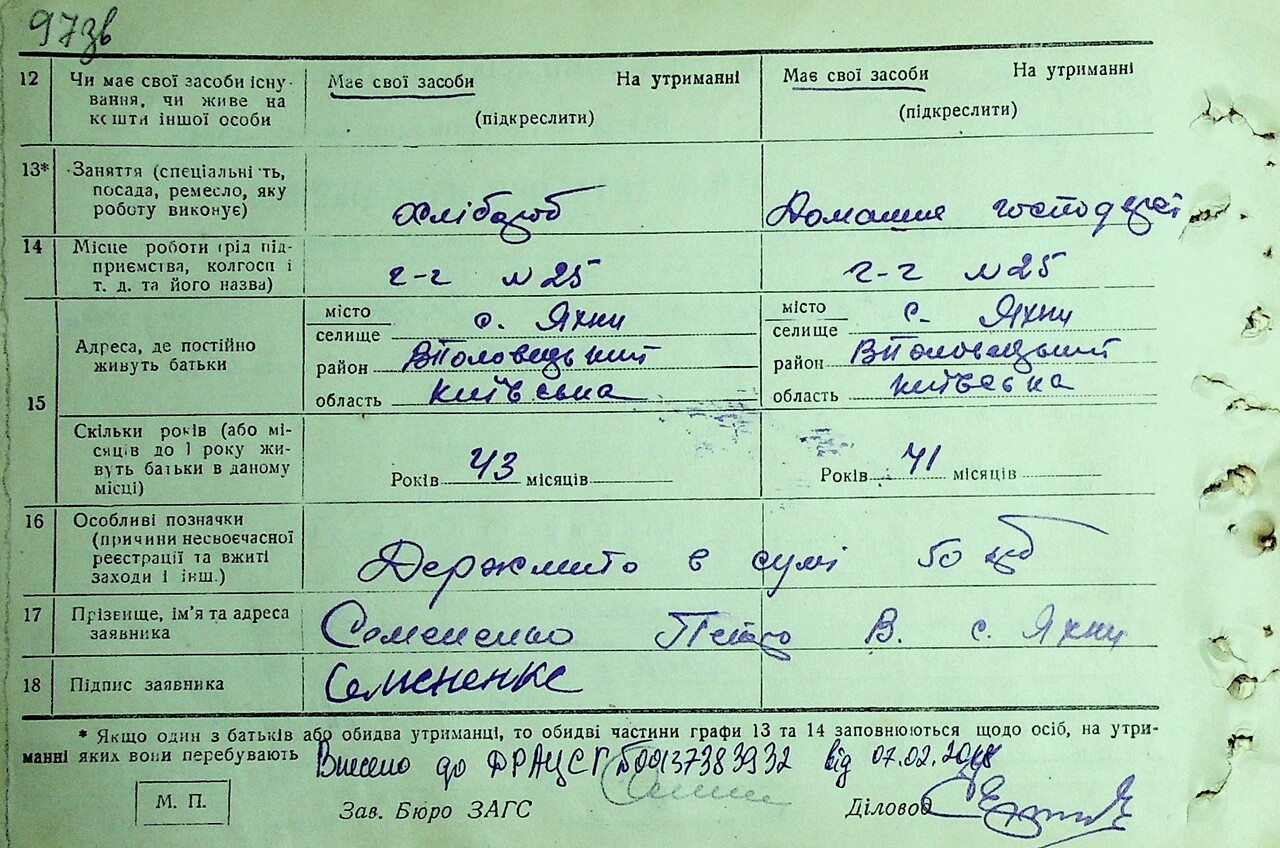 97зв
12 Чи має свої засоби існування, чи живе на кошти іншої особи Має свої засоби На утриманні (підкреслити) Має свої засоби На утриманні (підкреслити)
13* Заняття (спеціальні ть, посада, ремесло, яку роботу виконує) Хлібороб Домашнє
14 Місце роботи (рід підприємства, колгосп і т. д. та його назва) г-г №25 г-г №25
15 Адреса, де постійно живуть батьки
місто с. Яхни місто с. Яхни
селище селище
район район
область Київська область Київська
Скільки років (або місяців до 1 року живуть батьки в даному місці) Років 43 місяців Років 41 місяців
16 Особливі позначки (причини несвоєчасної реєстрації та вжиті заходи і інш.) Держмито в сумі 50
17 Прізвище, ім'я та адреса заявника Семененко Петро В. с. Яхни
18 Підпис заявника Семененко
* Якщо один з батьків або обидва утриманці, то обидві частини графи 13 та 14 заповнюються щодо осіб, на утри-
манні яких вони перебувають Внесено до ДРАЦСГ від 07.02.
М. П. Зав. Бюро ЗАГС Діловод